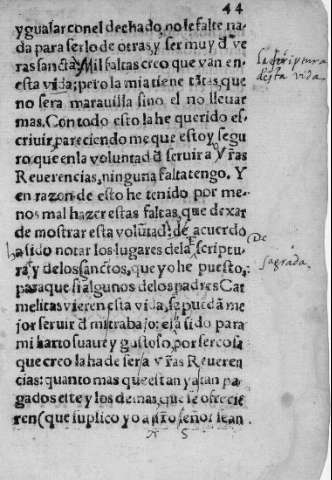 44
y gualar con el dechado, no le falte na
da para serlo de otras, y ser muy d̃ ve
ras sancta, Mil faltas creo que van en
esta vida; pero la mia tiene tãtas, que
no sera marauilla sino el no lleuar
mas. Con todo esto la he querido es-
criuir, pareciendo me que estoy segu
ro, que en la voluntad d̃ seruir a v̄ras
Reuerencias, ninguna falta tengo. Y
en razon de esto he tenido por me-
nos mal hazer estas faltas, que dexar
de mostrar esta volũtad: de acuerdo
ha sido notar los lugares dela scriptu-
ra, y de los sanctos, que yo he puesto,
para que si algunos de los padres Car
melitas vieren esta vida, se puedã me
jor seruir d̃ mi trabajo: el a sido para
mi harto suaue y gustoso, por ser cosa
que creo la ha de ser a v̄ras Reueren
cias: quanto mas que estan ya tan pa
gados este y los demas, que se ofrecie
ren (que suplico yo a nr̃o señor sean
la scriptura
desta vida.
De
sagrada.